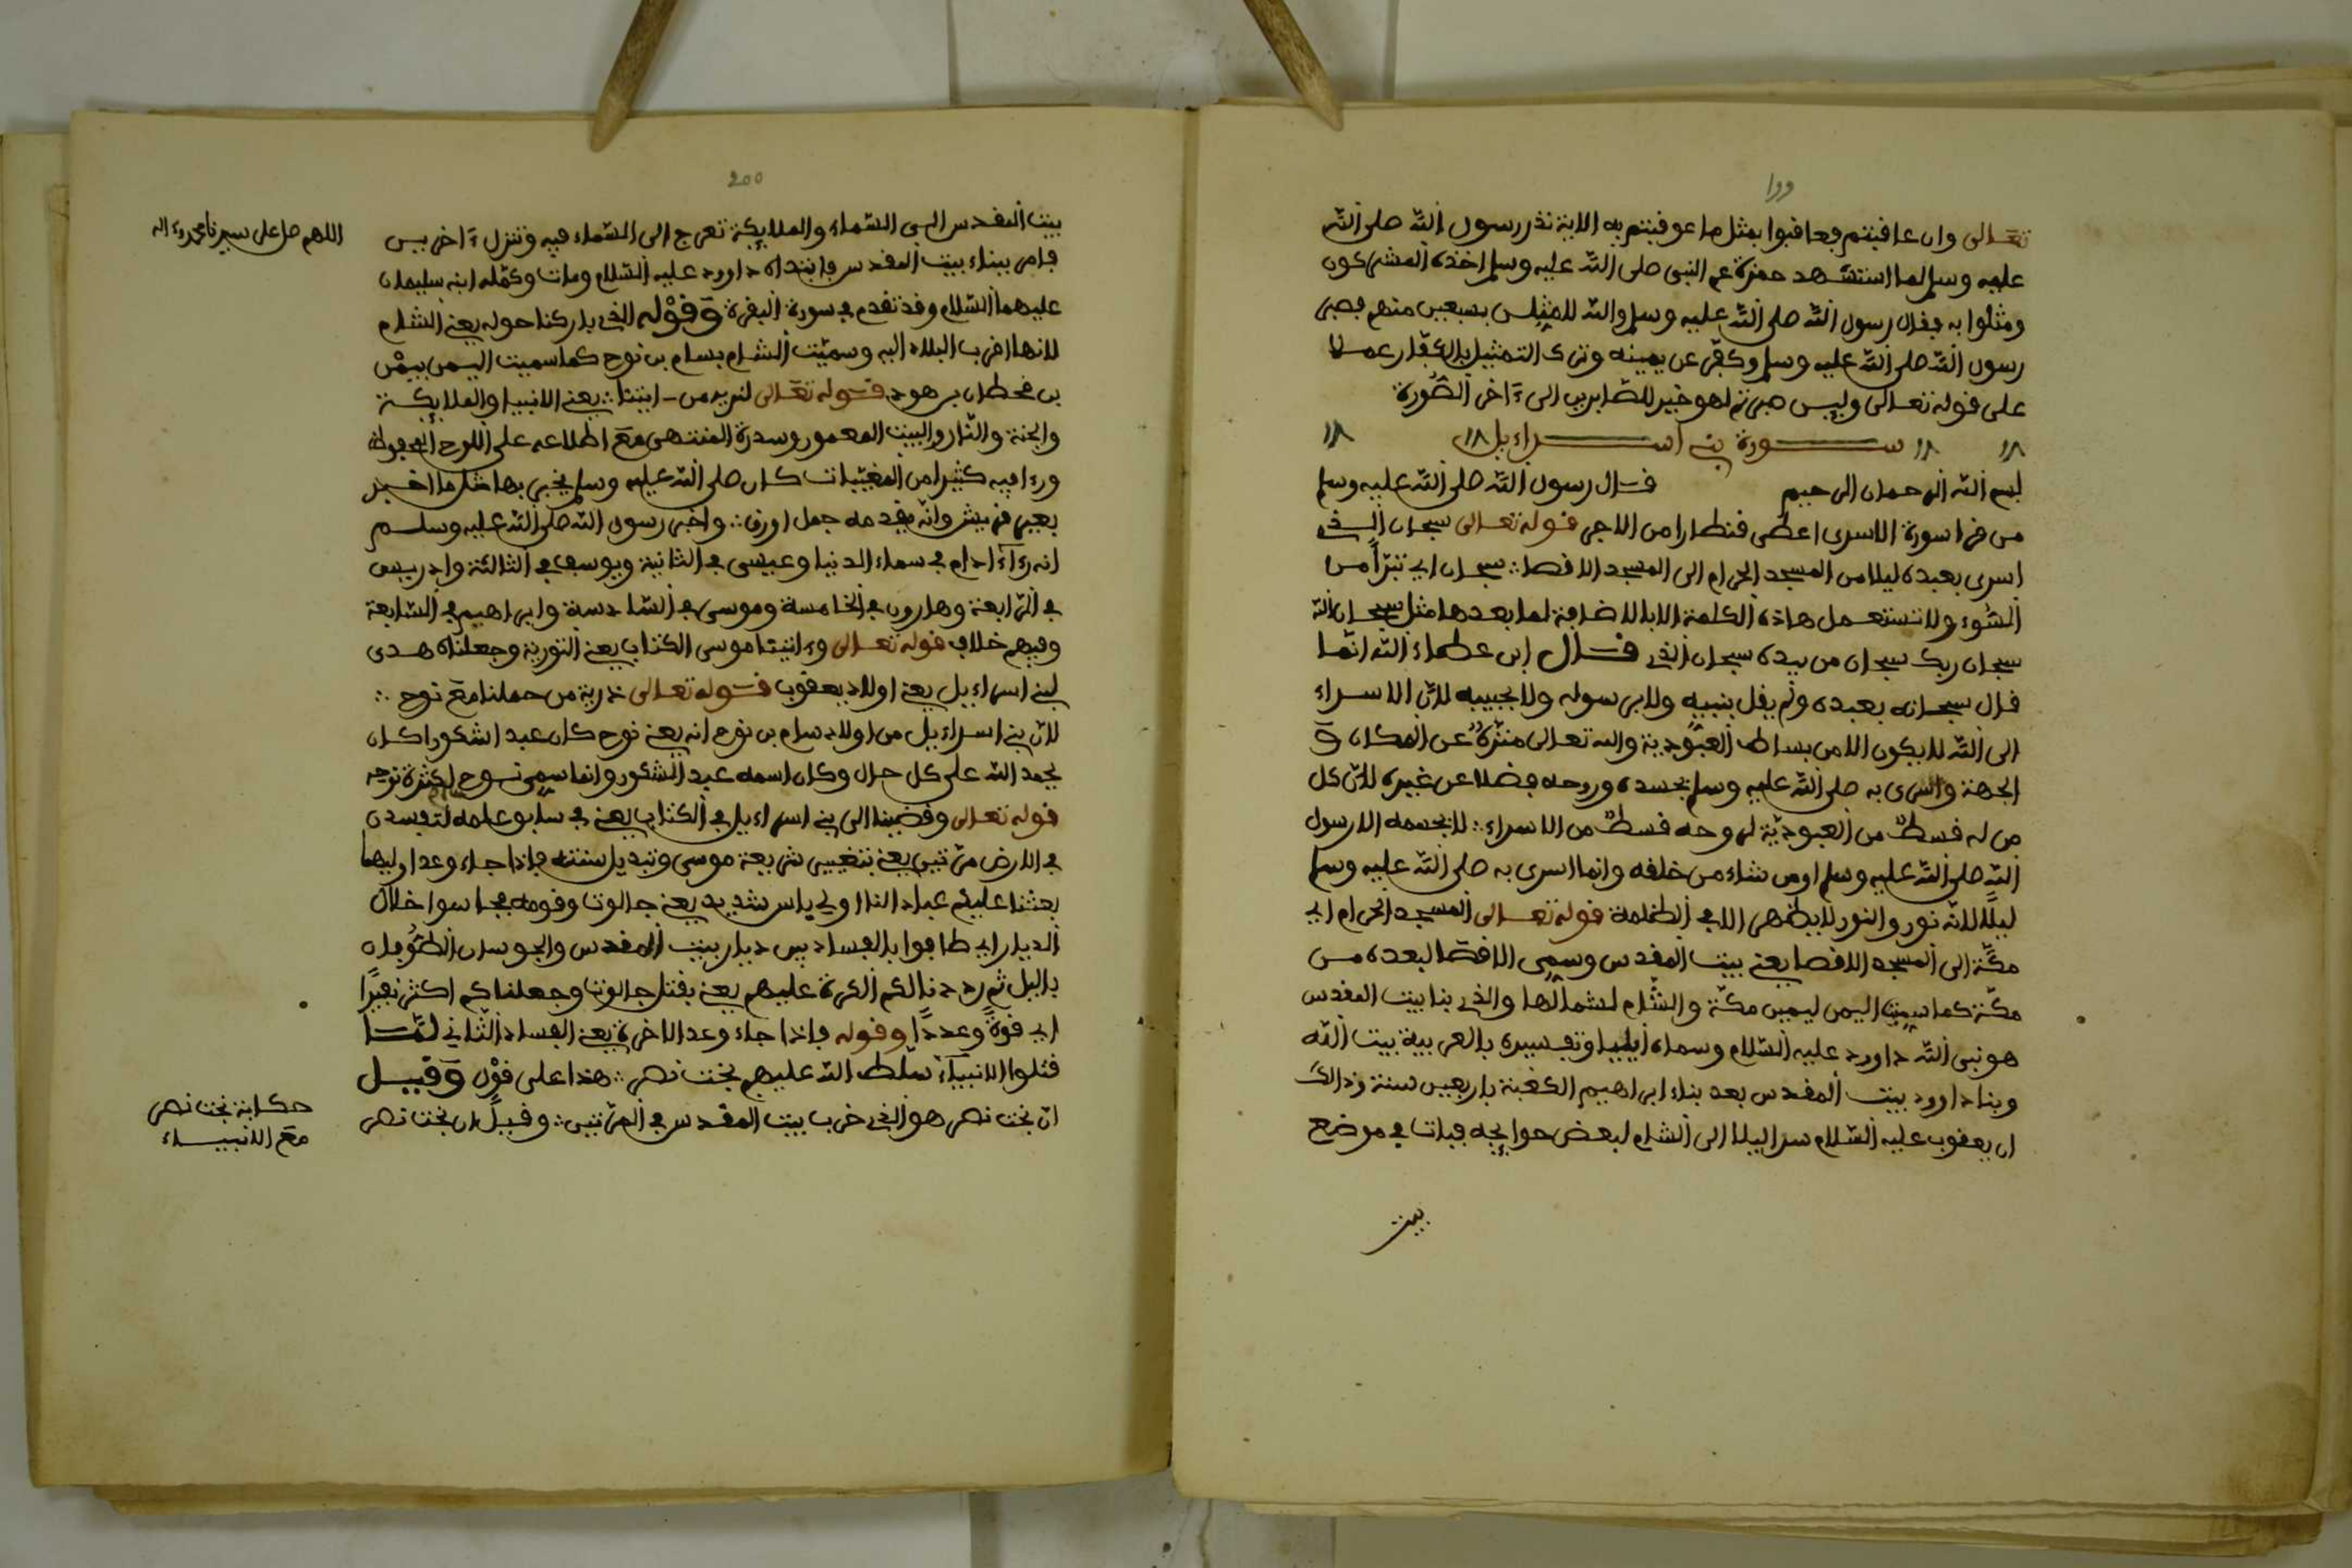 ١٩٩
تعالى وان عافبتم فعافبوا بمثل ما عوفبتم به الاية نذر رسول الله صلى الله
عليه وسلم لما استشهد حمزة عم النبى صلى الله عليه وسلم اخذه المشركون
ومثلوا به ففال رسول الله صلى الله عليه وسلم والله لامثلن بسبعين منهم فصبر
رسول الله صلى الله عليه وسلم وكفّر عن يمينه وترك التمثيل بالكفّار عملا
على فوله تعالى ولين صبرتم لهو خير للصّابرين الى ءاخر السّورة
سورة بنى اسراءيل
بسم الله الرحمان الرحيم فال رسول الله صلى الله عليه وسلم
من فرا سورة الاسرى اعطى فنطارا من الاجر فوله تعالى سبحان الذى
اسرى بعبده ليلا من المسجد الحرام الى المسجد الافصا ∴ سبحان اى تنزّاً من
السّوء ولا تستعمل هاذه الكلمة الا بالاضافة لما بعدها مثل سبحان الله
سبحان ربك سبحان من بيده سبحان الذى فال ابن عطاء الله انّما
فال سبحانه بعبده ولم يفل بنبيه ولا برسوله ولا بحبيبه لانّ الاسراء
الى الله لا يكون الا من بساط العبوّدية والله تعالى منزّهٌ عن المكان و
الجهة واسرى به صلى الله عليه وسلم بجسده وروحه فضلا عن غيره لانّ كل
من له فسطٌ من العبوديّة لروحه فسطٌ من الاسراء ∴ لا بجسمه الا رسول
الله صلى الله عليه وسلم او من شاء من خلفه وانما اسرى به صلى الله عليه وسلم
ليلاً لانّه نور والنور لا يظهر الا فى الظلمة فوله تعالى المسجد الحرام اى
مكّة الى المسجد الافصا يعنى بيت المفدس وسمى الافصا لبعده من
مكّة كما سميت اليمن ليمين مكّة والشّام لشمالها والذى بنا بيت المفدس
هو نبى الله داوود عليه السّلام وسماه ايليا وتفسيره بالعربية بيت الله
وبنا داوود بيت المفدس بعد بناء ابراهيم الكعبة باربعين سنة وذالك
ان يعفوب عليه السّلام سرا ليلا الى الشام لبعض حوايجه فبات فى موضع
بيت
٢٠٠
بيت المفدس الى السّماء والملايكة تعرج الى السّماء فيه وتنزل ءاخرين
فامر ببناء بيت المفدس فابتداه داوود عليه السّلام ومات وكمّله ابنه سليمان
عليهما السّلام وفد تفدم فى سورة البفرة وَفوْله الذى باركنا حوله يعنى الشام
لانها افرب البلاد اليه وسميّت الشام بسام بن نوح كما سميت اليمن بيمْن
بن فحطان بن هود فوله تعالى لنريه من ايتنا ∴ يعنى الانبيا والملايكة
والجنة والنّار والبيت المعمور وسدرة المنتهى مع اطلاعه على اللوح المحفوظ
ورءا فيه كثيرا من المغيّبات كان صلى الله عليه وسلم يخبر بها مثل ما اخبر
بعير فريش وانّه يفدمه جمل اورف ∴ واخبر رسول الله صلى الله عليه وسلم
انه رءاا ادام فى سماء الدنيا وعيسى فى الثانية ويوسف فى الثالثة وادريس
فى الرّابعة وهارون فى الخامسة وموسى فى السّادسة وابراهيم فى السّابعة
وفيهم خلاف فوله تعالى وءاتينا موسى الكتاب يعنى التورية وجعلناه هدى
لبنى اسراءيل يعنى اولاد يعفوب فوله تعالى ذرية من حملنا مع نوح ∴
لانّ بنى اسراءيل من اولاد سام بن نوح انه يعنى نوح كان عبدا شكورا كان
يحمد الله على كل حال وكان اسمه عبد الشكور وانما سمى نوح لكثرة نوحه
فوله تعالى وفضينا الى بنى اسراءيل فى الكتاب يعنى فى سابق علمه لتفسدن
فى الارض مرّتين يعنى بتغيير شريعة موسى وتبديل سنته فاذا جاء وعد اوليهما
بعثنا عليكم عبادا لنا اولى باس شديد يعنى جالوت وفومه فجاسوا خلال
الديار اى طافوا بالفساد بين ديار بيت المفدس والجوسان الطّوُفان
باليل ثم رددنا لكم الكرة عليهم يعنى بفتل جالوت وجعلناكم اكثر نفيرًا
اى فوةً وعددًا وفوله فاذا جاء وعد الاخرة يعنى الفساد الثّانى لمّا
فتلوا الانبياء سلّط الله عليهم بخت نصر ∴ هذا على فوْل وَفيل
انّ بخت نصر هو الذى خرب بيت المفدس فى المرّتين ∴ وفيل ان بخت نصر
اللهم صل على سيدنا محمد وءاله
حكاية بخت نصر
مع الانبياء